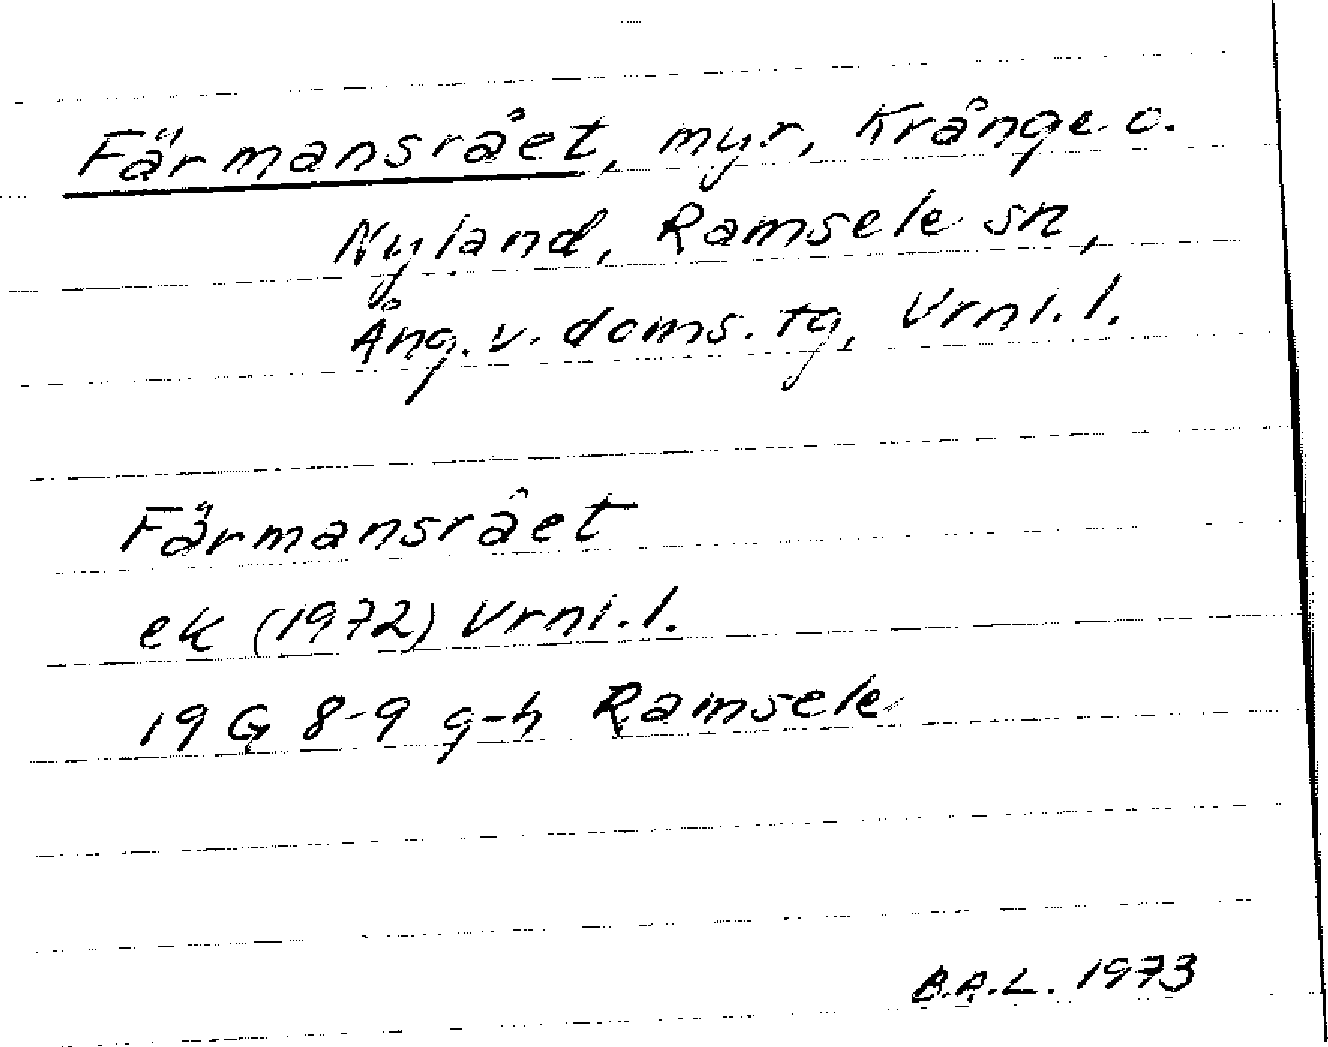 Färmansrået, myr, Krånge o.
Nyland, Ramsele sn,
Ång. v. doms. tg, Vrnl. l.
Färmansrået
ek (1972) Vrnl. l.
19 G 8-9 g-h Ramsele
B.A.L. 1973